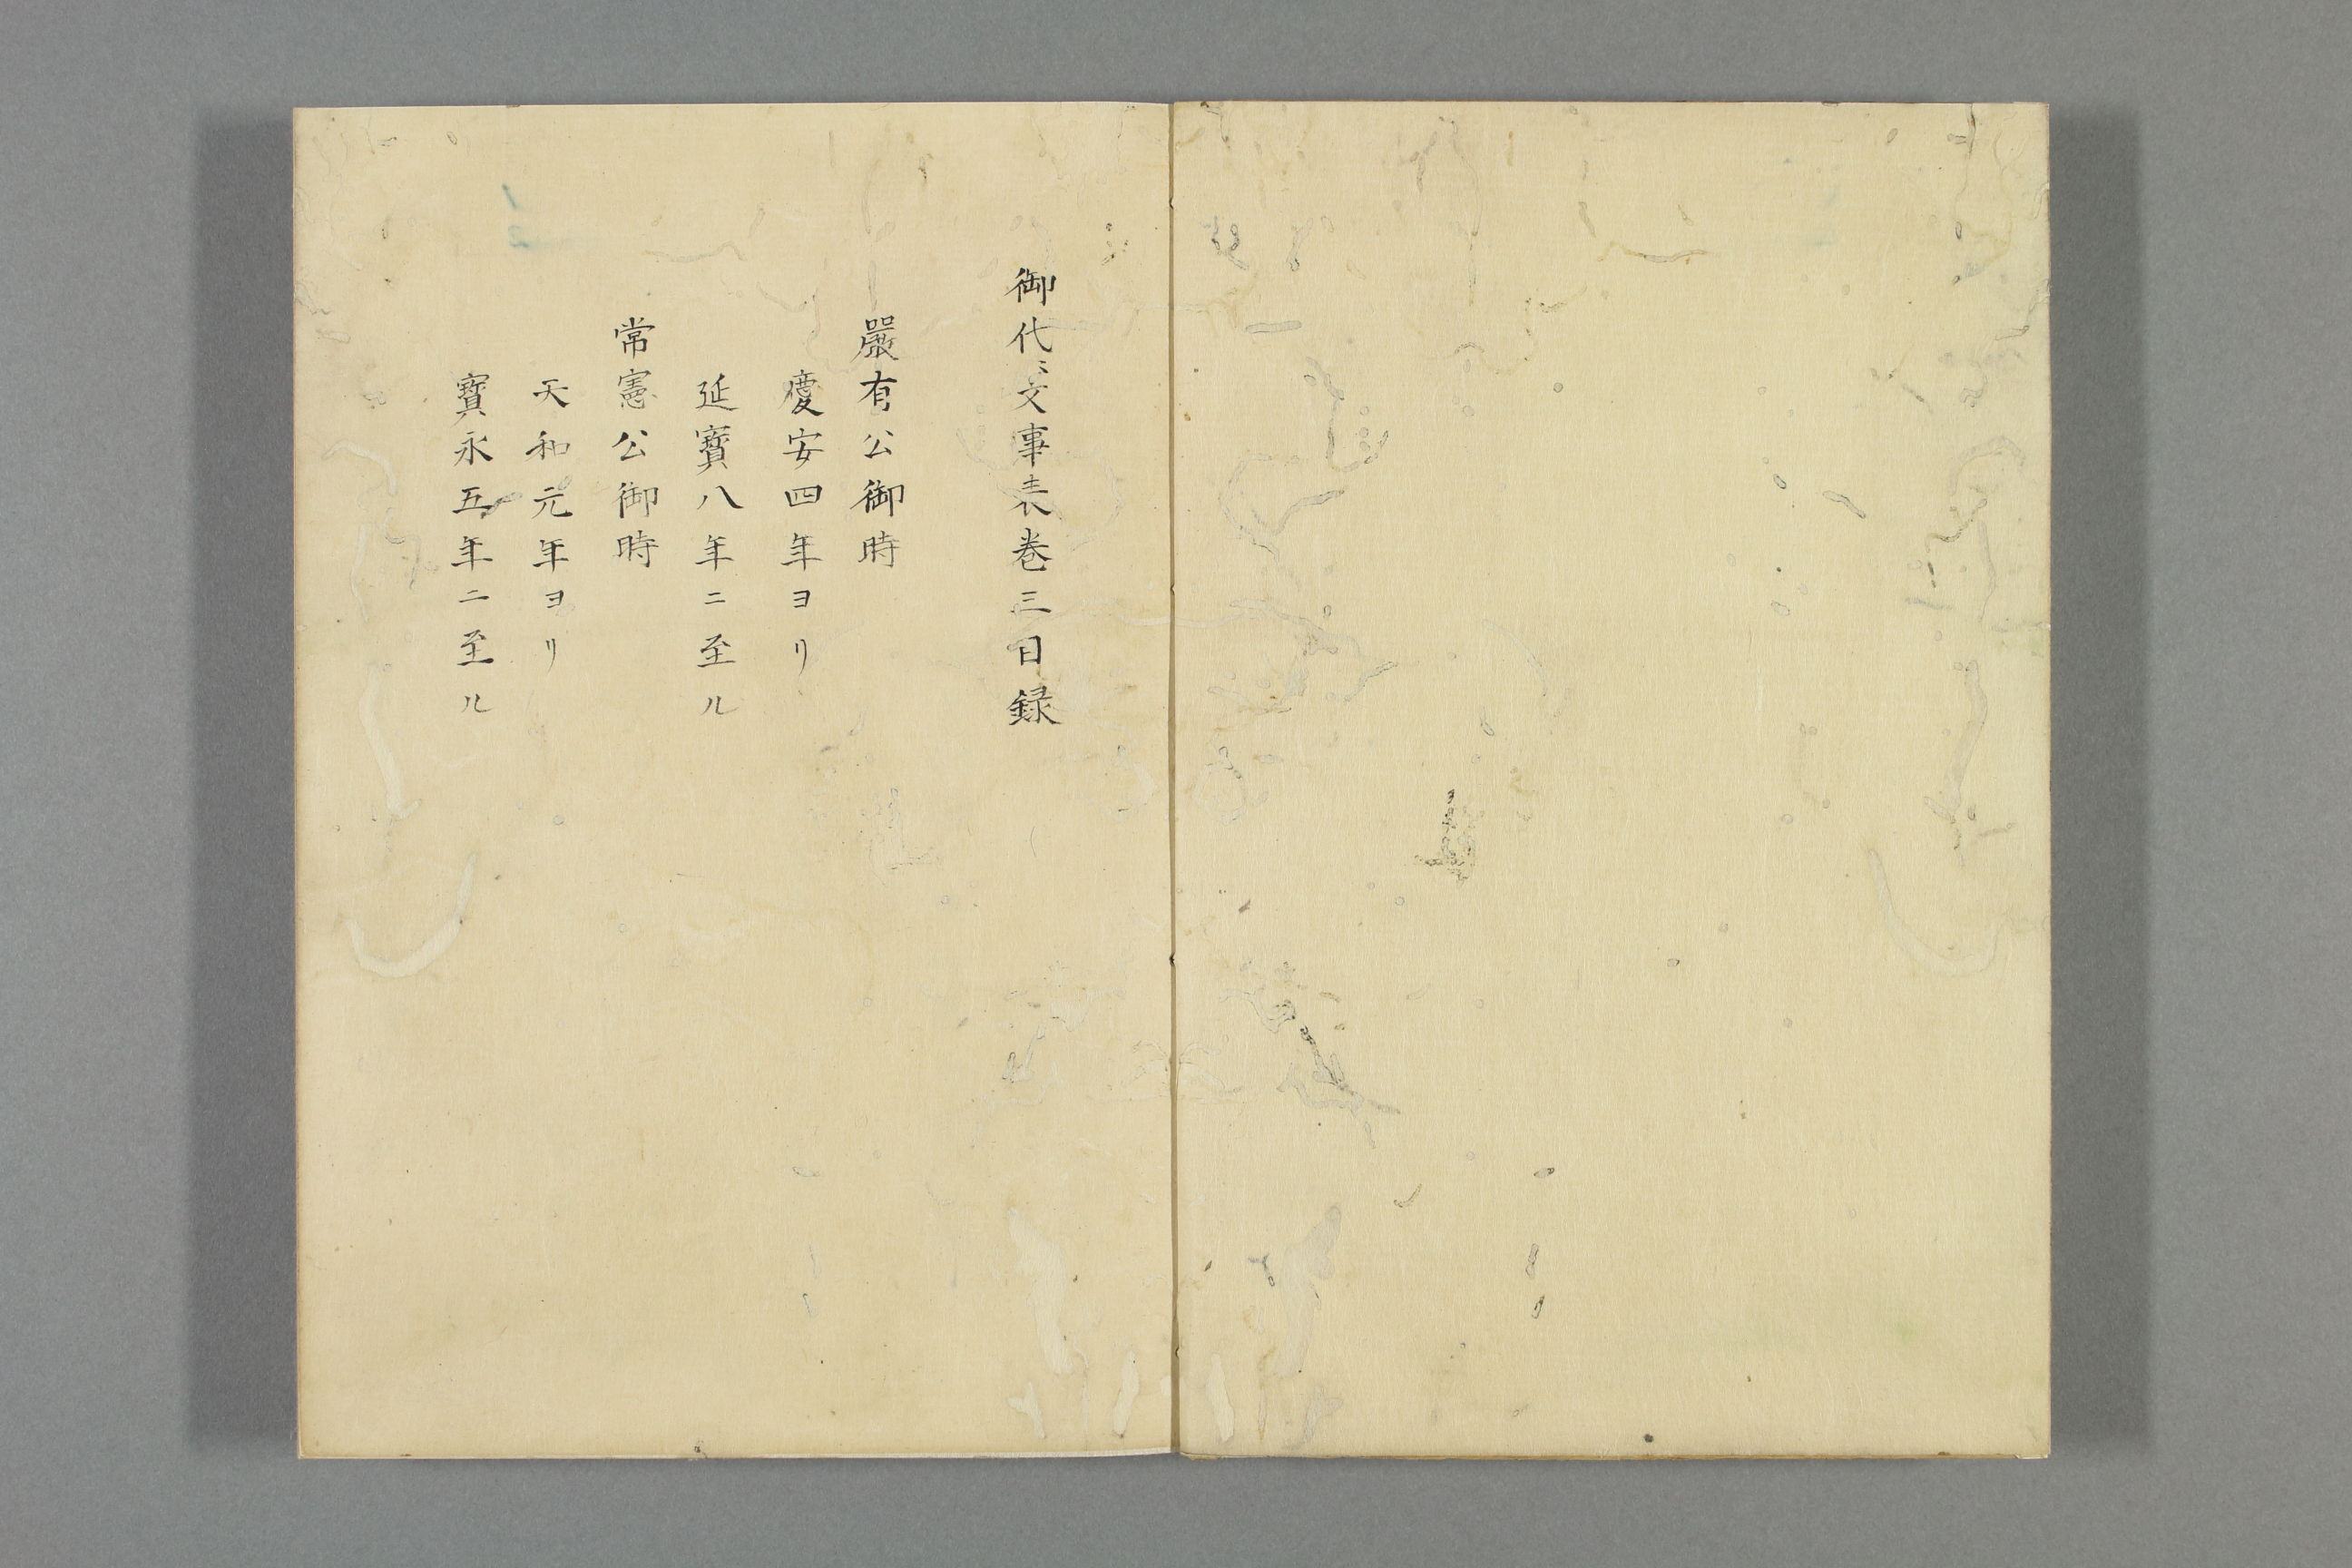 御代〻文事表巻三目録
嚴有公御時
慶安四年ヨリ
延寶八年ニ至ル
常憲公御時
天和元年ヨリ
寳永五年ニ至ル